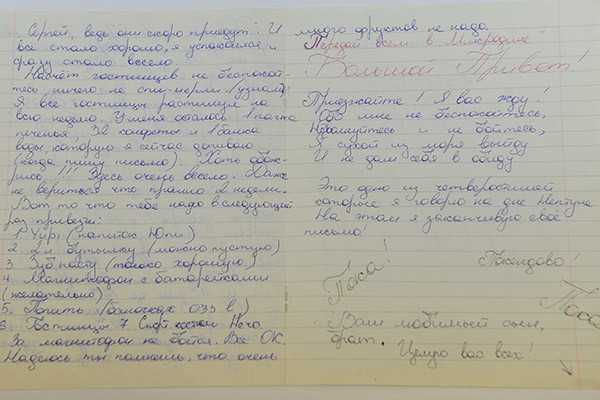 Сергей, ведь они скоро приедут! И
все стало хорошо, я успокоился и
сразу стало весело.
Насчёт гостинцев не беспокой-
тесь, ничего не спи
Я все гостинцы растянул на
всю неделю. У меня осталось 1 пачка
печенья, 32 конфеты и 1 банка
воды, которую я сейчас допиваю
(когда пишу письмо). Хоть обож-
рись!!! Здесь очень весело. Даже
не верится что прошло 2 недели.
Вот то что тебе надо в следующий
раз привезти:
1. Юпи, (напиток Юпи)
2. 2 л бутылку (можно пустую)
3. Зуб. пасту (только хорошую)
4. Магнитофон с батарейками
(желательно)
5. Попить (баночках 0,33 l)
6. Гостинцы 7.
За магнитофон не бойтесь. Все ОК.
Надеюсь ты помнишь, что очень
много фруктов не надо.
Передай всем в
Большой Привет!
Приезжайте! Я вас жду!
Обо мне не беспокойтесь,
Не волнуйтесь и не бойтесь,
Я сухой из моря выйду
И не дам себя в обиду
Это одно из четверостиший
которые я говорю на дне Нептуна
На этом я заканчиваю своё
письмо!
Пока!
Ваш любимый сын,
брат.
Целую вас всех!